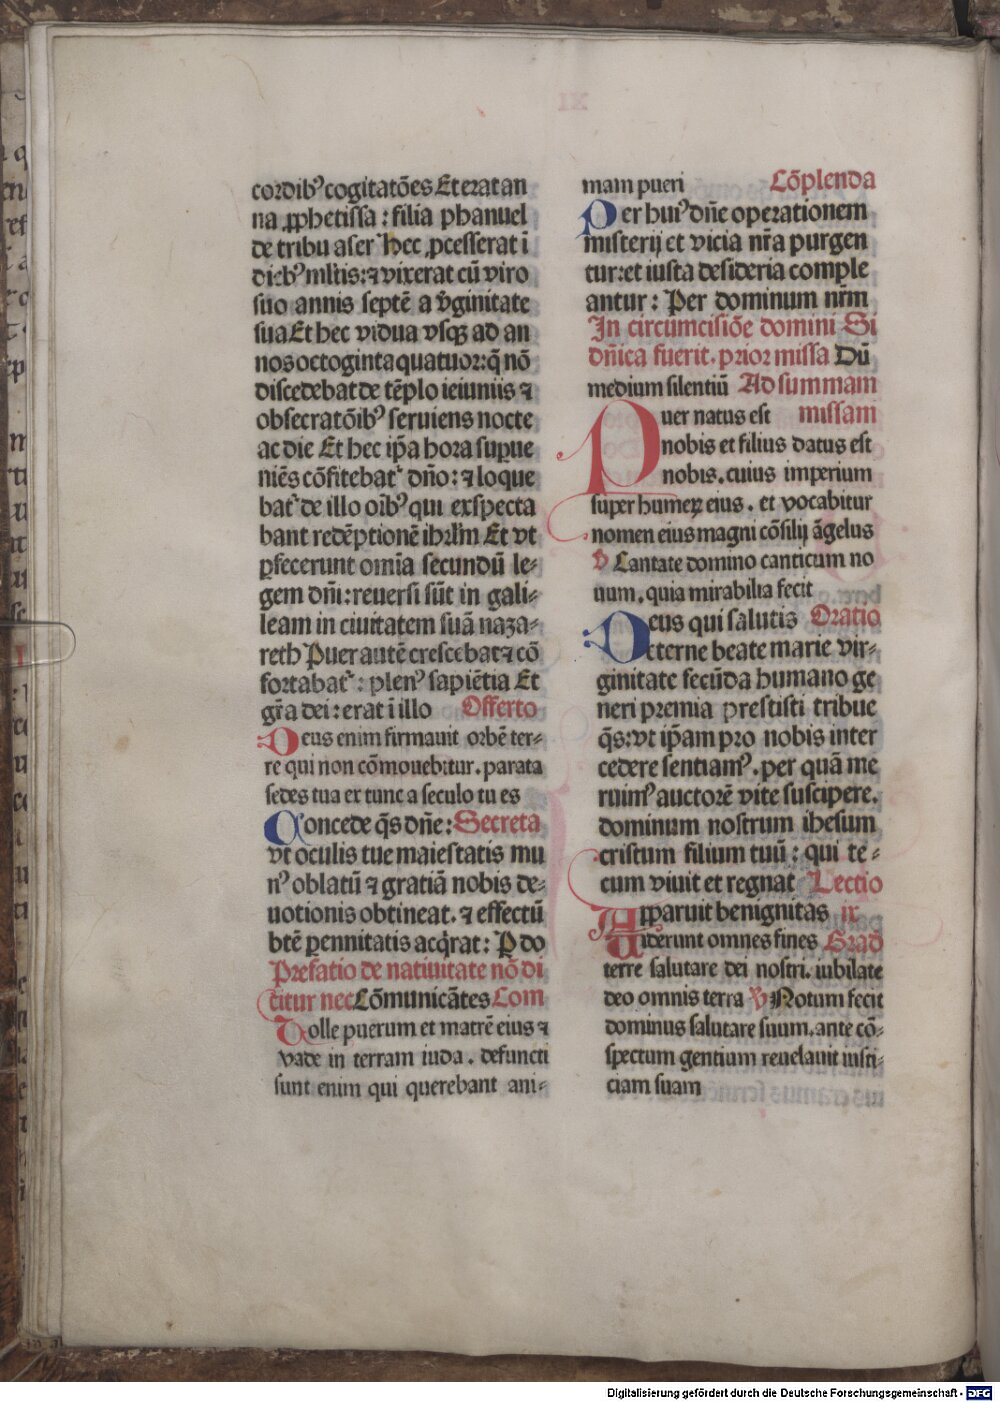 cordibꝰ cogitatōes Et erat an
na ꝓphetissa : filia phanuel
de tribu aser hec ꝓcesserat ī
diebꝰ mltis: ⁊ vixerat cū viro
suo annis septē a v̄ginitate
sua Et hec vidua vsqꝫ ad an
nos octoginta quatuor: q̄ nō
discedebat de tēplo ieiuniis ⁊
obsecratōibꝰ seruiens nocte
ac die Et hec ip̄a hora supue
niēs cōfitebatᷣ dn̄o: ⁊ loque
batᷣ de illo oībꝰ qui exspecta
bant redēptionē ihrl̄m Et vt
ꝑfecerunt omīa secundū le-
gem dn̄i: reuersi sūt in gali-
leam in ciuitatem suā naza-
reth Puer autē crescebat ⁊ cō
fortabatᷣ : plenꝰ sapiētia Et
gr̄a dei : erat ī illo Offerto
Deus enim firmauit orbē ter-
re qui non cōmouebitur. parata
sedes tua ex tunc a seculo tu es
Concede q̄s dn̄e: Secreta
vt oculis tue maiestatis mu
nꝰ oblatū ⁊ gratiā nobis de-
uotionis obtineat. ⁊ effectū
btē ꝑennitatis acq̄rat: P do
Prefatio de natiuitate nō di
citur nec Cōmunicātes Com
Tolle puerum et matrē eius ⁊
vade in terram iuda. defuncti
sunt enim qui querebant ani-
mam pueri Cōplenda
Per huiꝰ dn̄e operationem
misterij et vicia nr̄a purgen
tur: et iusta desideria comple
antur : Per dominum nr̄m
In circumcisiōe domini Si
dn̄ica fuerit. prior missa Dū
medium silentiū Ad summam
Puer natus est missam
nobis et filius datus est
nobis. cuius imperium
super humeꝝ eius. et vocabitur
nomen eius magni cōsilij āgelus
V Cantate domino canticum no
uum. quia mirabilia fecit
Deus qui salutis Oratio
eterne beate marie vir-
ginitate secūda humano ge
neri premia prestisti tribue
q̄s: vt ip̄am pro nobis inter
cedere sentiamꝰ. per quā me
ruimꝰ auctorē vite suscipere.
dominum nostrum ihesum
cristum filium tuū : qui te-
cum viuit et regnat Lectio
Apparuit benignitas ix
Uiderunt omnes fines Grad
terre salutare dei nostri. iubilate
deo omnis terra V Notum fecit
dominus salutare suum. ante cō-
spectum gentium reuelauit iusti-
ciam suam
Digitalisierung gefördert durch die Deutsche Forschungsgemeinschaft - DFG